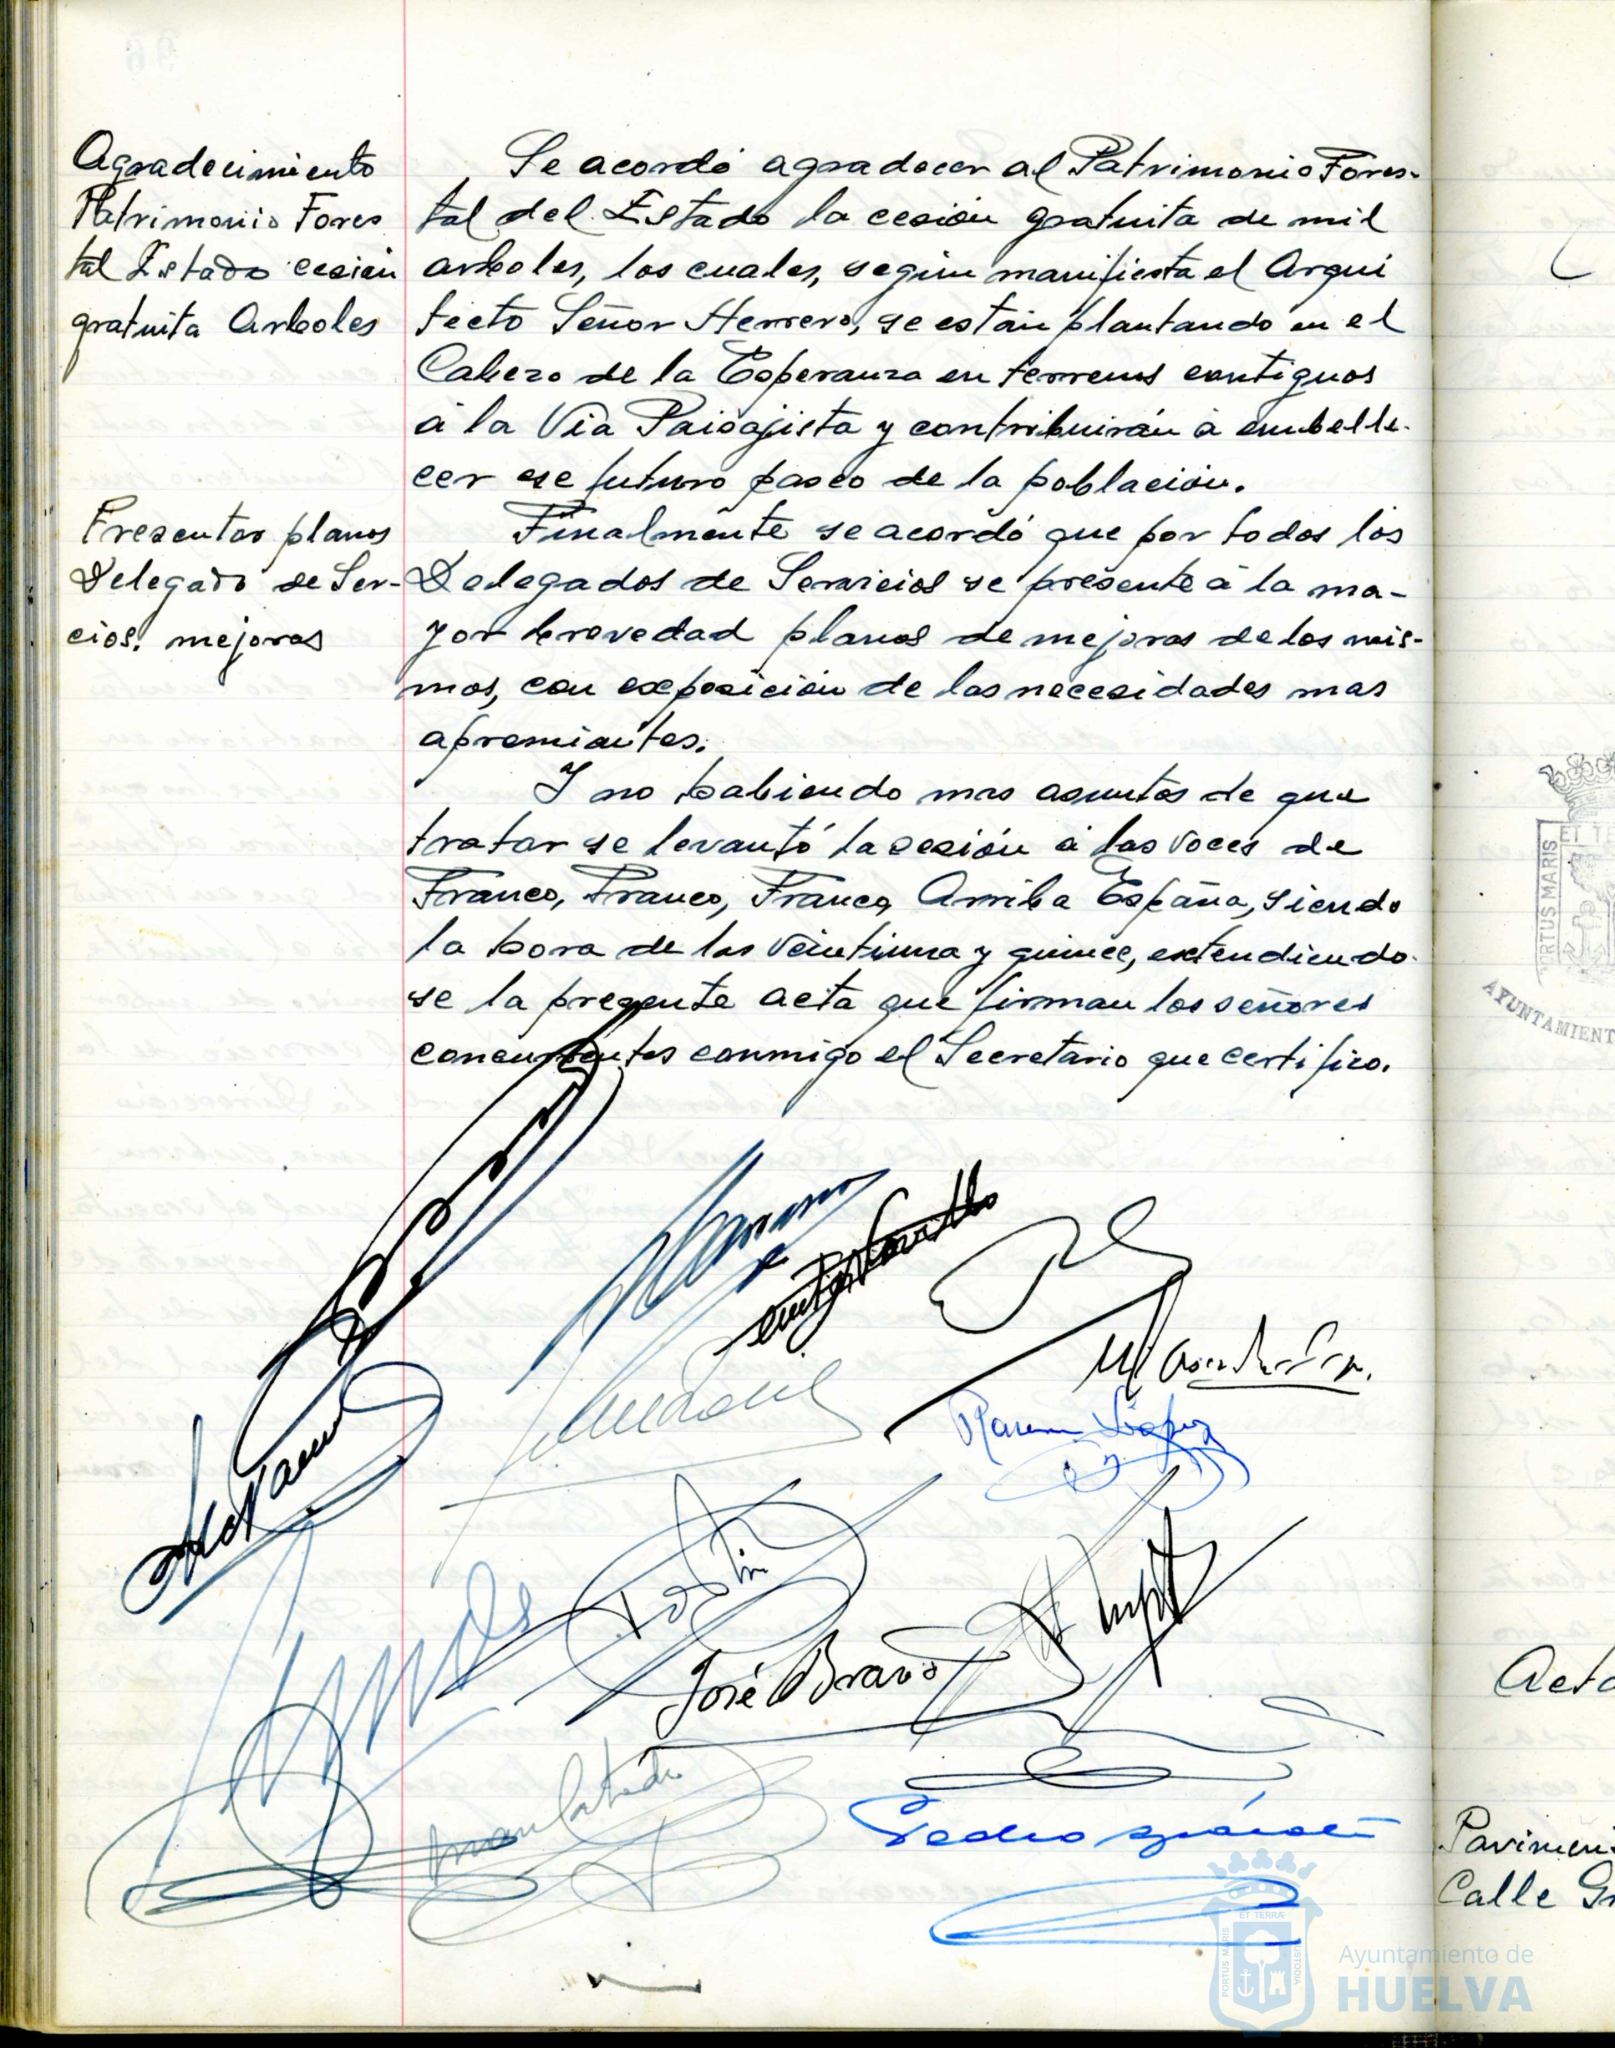 Agradecimiento
Patrimonio Fores
tal Estado cesión
gratuita Arboles
Se acordó agradecer al Patrimonio Fores-
tal del Estado la cesión gratuita de mil
arboles, los cuales, según manifiesta el Arqui
tecto Señor Herrero, se están plantando en el
Cabezo de la Esperanza en terrenos contiguos
á la Via Paisajista y contribuirán á embelle-
cer ese futuro paseo de la población.
Presentar planos
Delegado de Ser-
cios. mejoras
Finalmente se acordó que por todos los
Delegados de Servicios se presente á la ma-
yor brevedad planos de mejoras de los mis-
mos, con exposición de las necesidades mas
apremiantes.
Y no habiendo mas asuntos de que
tratar se levantó la sesión á las voces de
Franco, Franco, Franco, Arriba España, siendo
la hora de las veintiuna y quince, extendiendo-
se la presente acta que firman los señores
concurrentes conmigo el Secretario que certifico.
José Bravo
Pedro
ET TERRÆ
PORTUS MARIS
CUSTODIA
Ayuntamiento de
HUELVA
ET TE
PORTUS MARIS
AYUNTAMIENT
Acta
Pavimen
Calle G